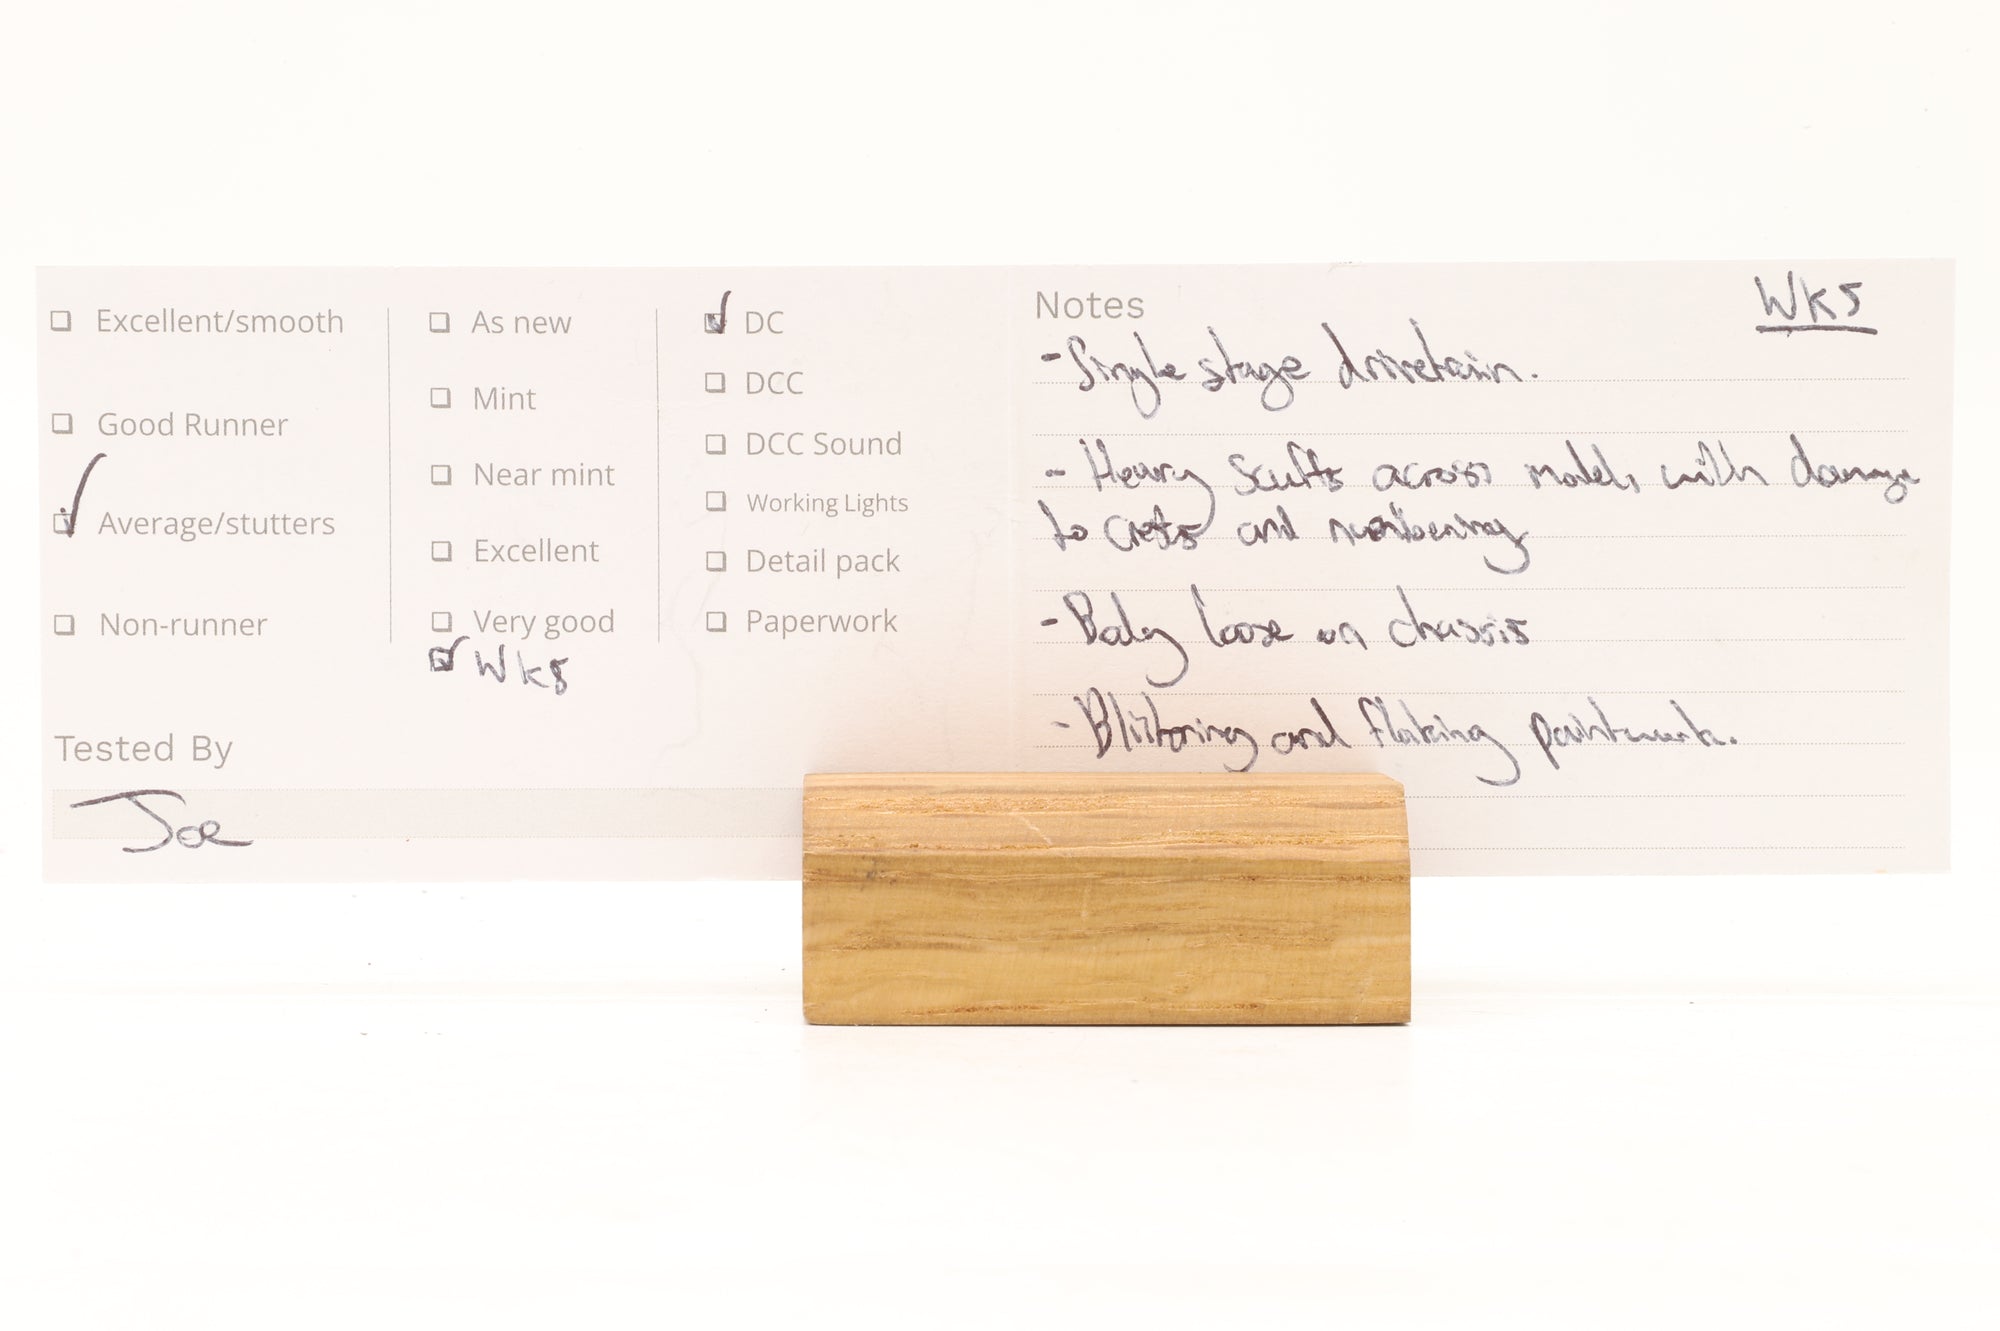 Excellent/smooth
Good Runner
Average/stutters
Non-runner
As new
Mint
Near mint
Excellent
Very good
Wks
DC
DCC
DCC Sound
Working Lights
Detail pack
Paperwork
Tested By
Joe
Notes
Wks
- Single stage drivetrain.
- Heavy scuffs across model, with damage
to crests and numbering
- Body loose on chassis
- Blistering and flaking paintwork.